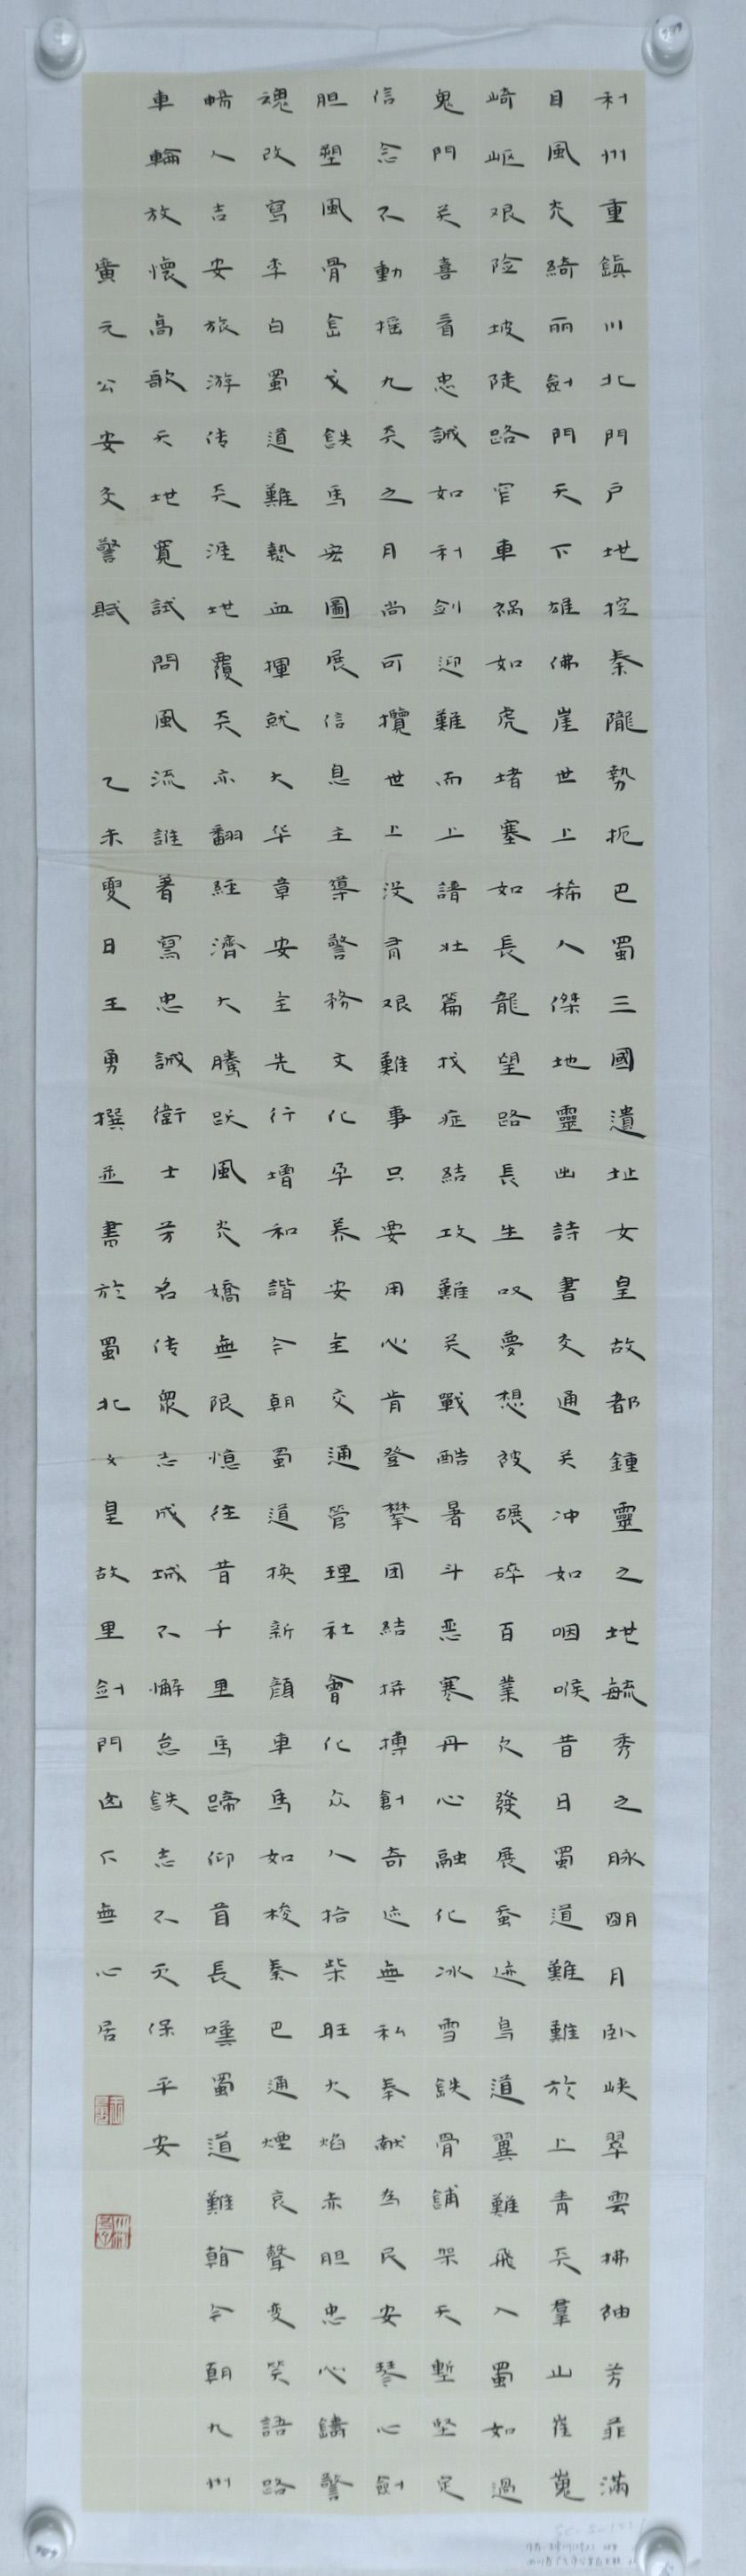 利州重鎮川北門户地控秦隴勢扼巴蜀三國遺址女皇故都鍾靈之地毓秀之脉朙月卧峽翠雲拂袖芳菲滿
目風光綺丽劍門天下雄佛崖世上稀人傑地靈出詩書交通关冲如咽喉昔日蜀道難難於上青天羣山崔嵬
崎岖艰险坡陡路窄車祸如虎堵塞如長龍望路長生叹夢想被碾碎百業欠發展蚕迹鸟道翼難飛入蜀如過
鬼門关喜看忠誠如利剑迎難而上譜壮篇找症結攻難关戰酷暑斗恶寒丹心融化冰雪鉄骨鋪架天塹坚定
信念不動摇九天之月尚可攬世上没有艰難事只要用心肯登攀团結拼搏創奇迹無私奉献為民安琴心劍
胆塑風骨金戈鉄馬宏圖展信息主導警務文化孕养安全交通管理社會化众人拾柴旺火焰赤胆忠心鑄警
魂改寫李白蜀道難熱血揮就大华章安全先行增和諧今朝蜀道换新顔車馬如梭秦巴通煙哀聲变笑語路
暢人吉安旅游传天涯地覆天亦翻經濟大騰跃風光嬌無限憶往昔千里馬蹄仰首長嘆蜀道難翰今朝九州
車輪放懷高歌天地寬試問風流誰著寫忠誠衛士芳名传衆志成城不懈怠鉄志不灭保平安
廣元公安交警賦
乙未夏日王勇撰並書於蜀北女皇故里剑門函下無心居